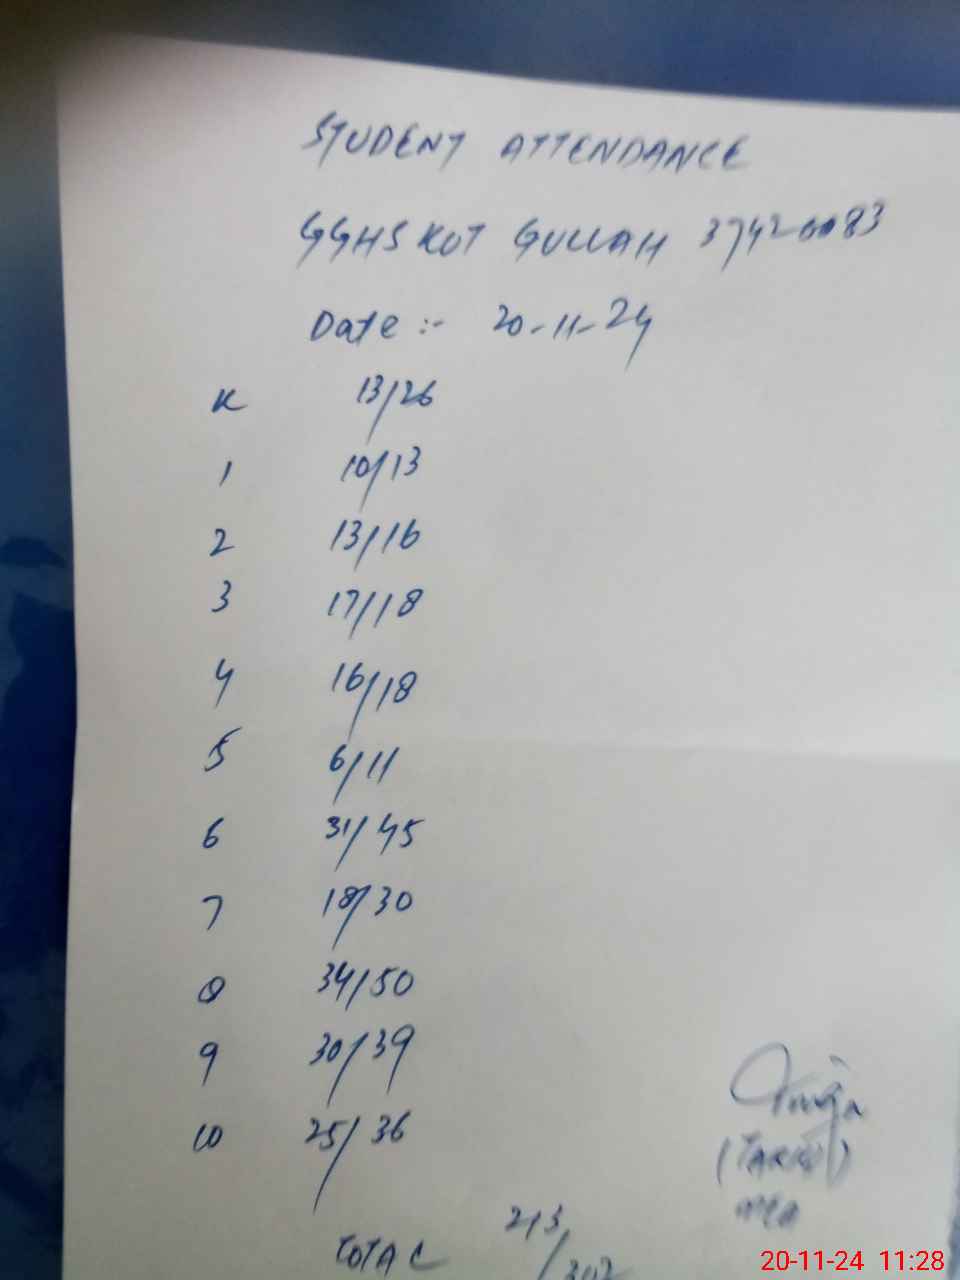 STUDENT ATTENDANCE
GGHS KOT GULLAH 37420083
Date :- 20-11-24
K 13/26
1 10/13
2 13/16
3 17/18
4 16/18
5 6/11
6 31/45
7 18/30
8 34/50
9 30/39
10 25/36
TOTAL 213/302
MEA
20-11-24 11:28